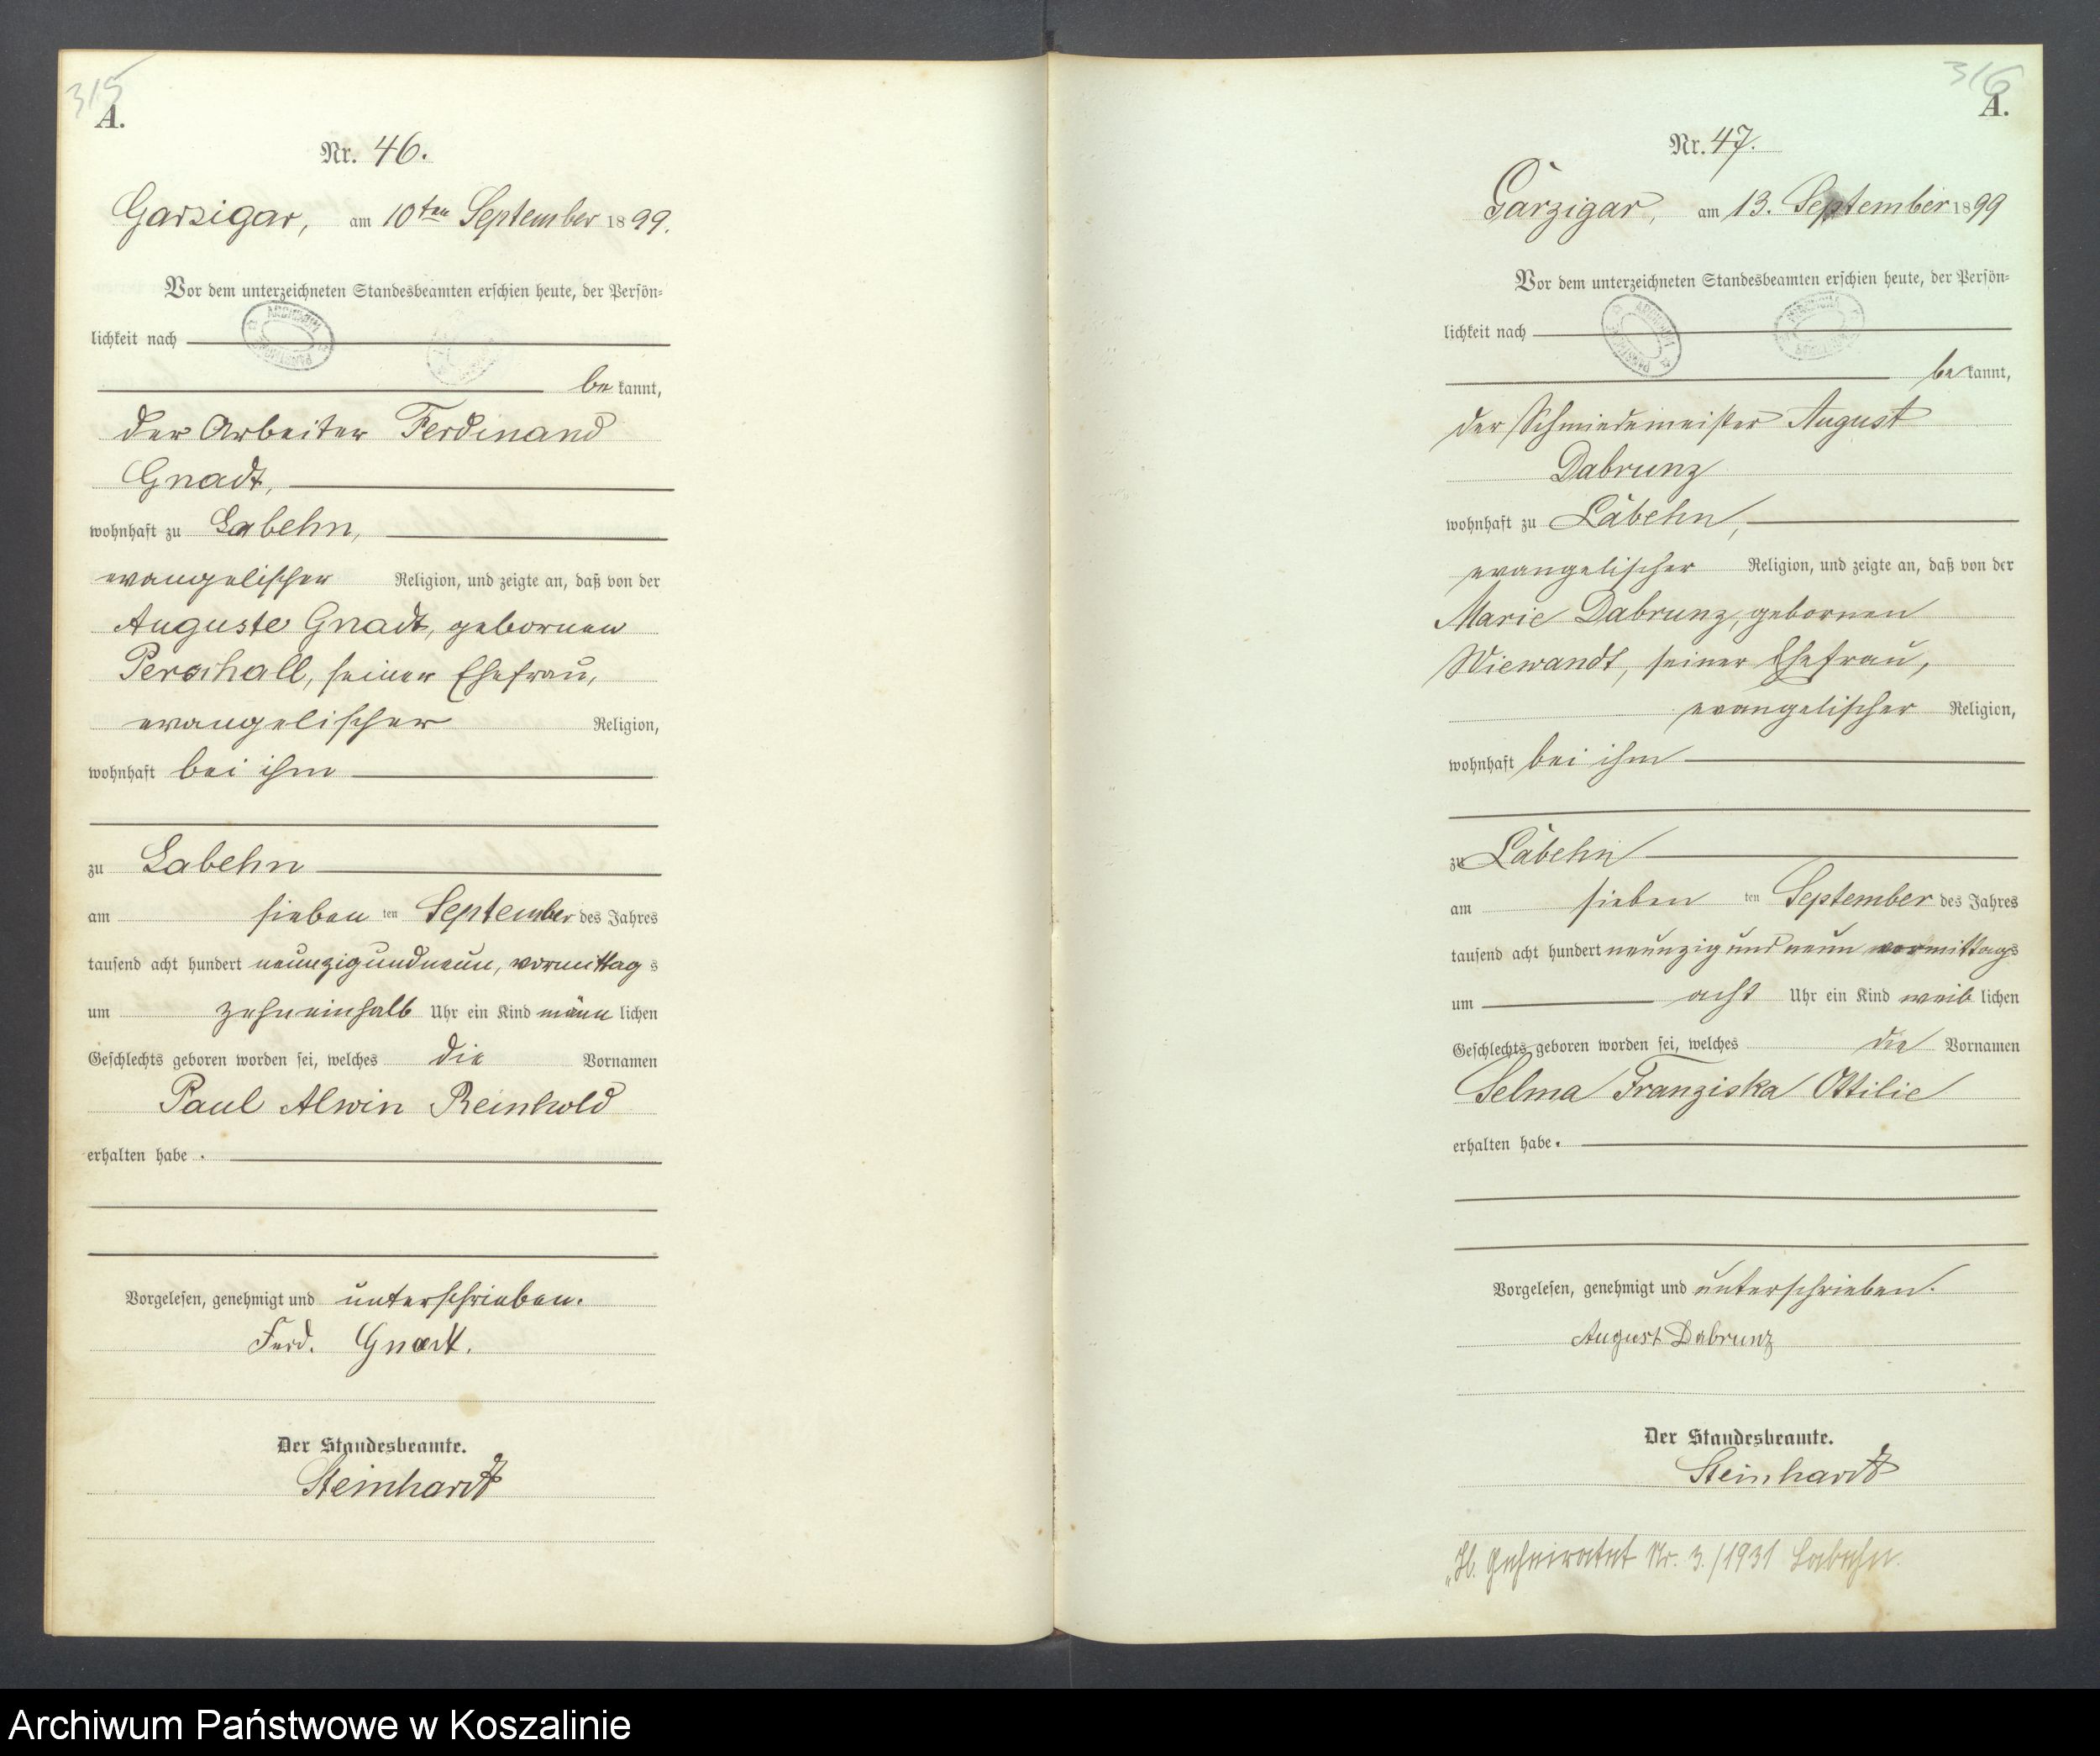 315
A.
Nr. 46.
Garzigar, am 10ten September 1899.
Vor dem unterzeichneten Standesbeamten erschien heute, der Persön-
lichkeit nach
be kannt,
der Arbeiter Ferdinand
Gnadt,
wohnhaft zu Labehn,
evangelischer Religion, und zeigte an, daß von der
Auguste Gnadt, gebornen
Perschall, seiner Ehefrau,
evangelischer Religion,
wohnhaft bei ihm
zu Labehn
am sieben ten September des Jahres
tausend acht hundert neunzigundneun, vormittag s
um zehneinhalb Uhr ein Kind männ lichen
Geschlechts geboren worden sei, welches die Vornamen
Paul Alwin Reinhold
erhalten habe.
Vorgelesen, genehmigt und unterschrieben.
Ferd. Gnadt.
Der Standesbeamte.
Steinhardt
316
A.
Nr. 47.
Garzigar, am 13. September 1899
Vor dem unterzeichneten Standesbeamten erschien heute, der Persön-
lichkeit nach
be kannt,
der Schmiedemeister August
Dabrunz
wohnhaft zu Labehn,
evangelischer Religion, und zeigte an, daß von der
Marie Dabrunz, gebornen
Wiewandt, seiner Ehefrau,
evangelischer Religion,
wohnhaft bei ihm
zu Labehn
am sieben ten September des Jahres
tausend acht hundert neunzig und neun vormittags
um acht Uhr ein Kind weib lichen
Geschlechts geboren worden sei, welches die Vornamen
Selma Franziska Ottilie
erhalten habe.
Vorgelesen, genehmigt und unterschrieben.
August Dabrunz
Der Standesbeamte.
Steinhardt
Geheiratet Nr. 3./1931 Labehn.
Archiwum Państwowe w Koszalinie